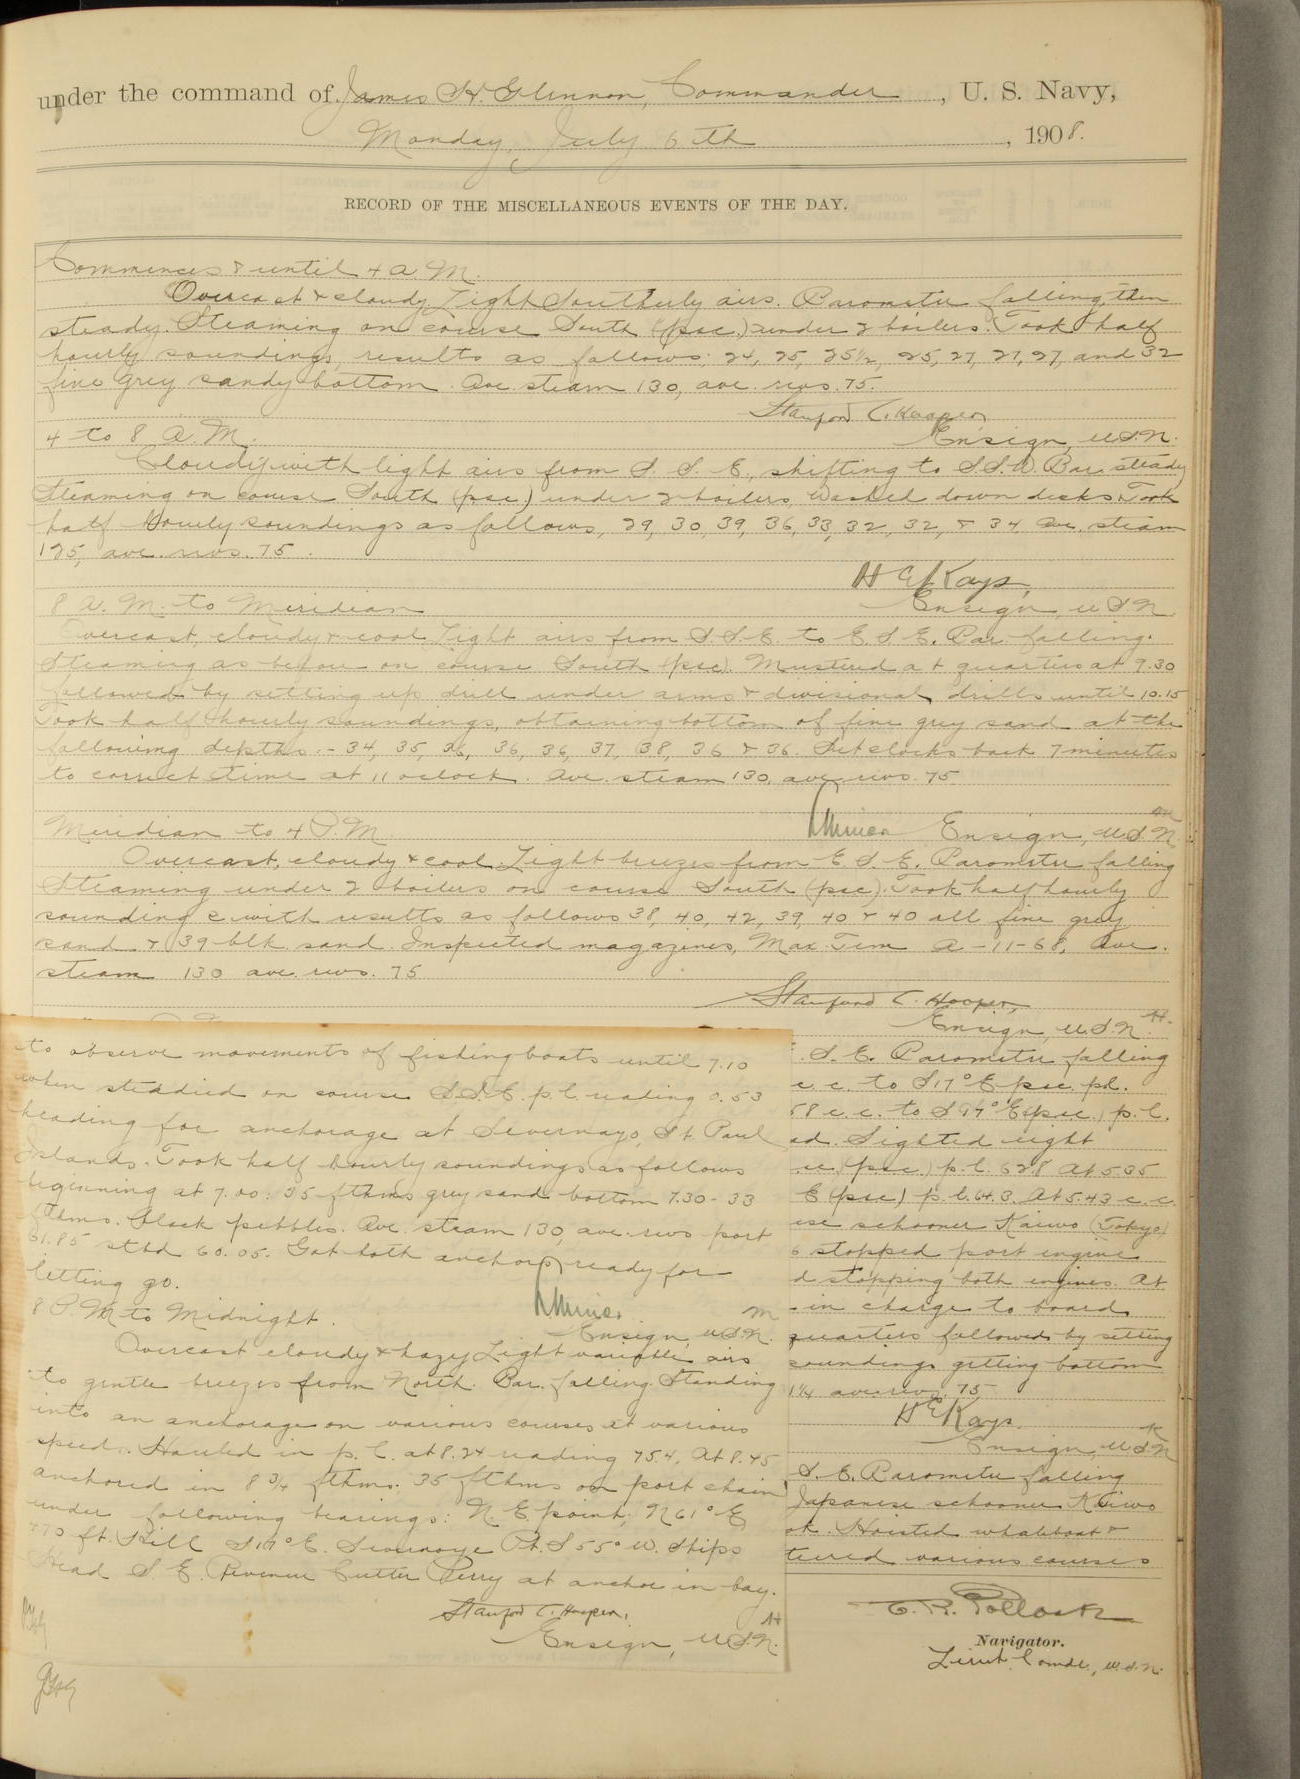 under the command of James H. Glennon, Commander, U. S. Navy,
Monday, July 6th, 1908.
RECORD OF THE MISCELLANEOUS EVENTS OF THE DAY.
Commences & until 4 A.M.
Overcast & cloudy. Light Southerly airs. Barometer falling, then
steady. Steaming on course South (psc.) under 2 boilers. Took half
hourly soundings, results as follows: 24, 25, 25½, 25, 27, 27, 27, and 32
fine grey sandy bottom. Ave. steam 130, ave. revs. 75.
Stanford C. Hooper
Ensign, U.S.N.
4 to 8 A.M.
Cloudy with light airs from S. S. E., shifting to S.S.W. Bar. steady
Steaming on course South (psc.) under 2 boilers. Washed down decks. Took
half hourly soundings as follows, 29, 30, 39, 36, 33, 32, 32, & 34. Ave. steam
125, ave. revs. 75.
H E Kays,
Ensign, U.S.N.
8 A.M. to Meridian
Overcast, cloudy & cool. Light airs from S.S.E. to E.S.E. Bar falling.
Steaming as before on course South (psc). Mustered at quarters at 9.30
followed by setting up drill under arms & divisional drills until 10.15
Took half hourly soundings, obtaining bottom of fine grey sand at the
following depths. - 34, 35, 36, 36, 36, 37, 38, 36 & 36. Set clocks back 7 minutes
to correct time at 11 oclock. Ave. steam 130, ave revs. 75
Ensign, U.S.N.
Meridian to 4 P.M.
Overcast, cloudy & cool. Light breezes from E. S. E. Barometer falling
Steaming under 2 boilers on course South (psc). Took half hourly
soundings with results as follows 38, 40, 42, 39, 40 & 40 all fine grey
sand & 39 blk. sand. Inspected magazines, Max Tem A-11-68, Ave.
steam 130 ave. revs. 75
Stanford C. Hooper,
Ensign, U.S.N.
S. E. Barometer falling
c. c. to S17°E psc. p.l.
58 c. c. to (psc.) p. l.
ad. Sighted light
(psc.) p.l. 62.8 At 5.35
E (psc) p.l. 64.3. At 5.43 c. c.
ese schooner Kaiwo (Tokyo)
6 stopped port engine
d stopping both engines. At
in charge to board
quarters followed by setting
soundings getting bottom
1¼ ave. revs. 75
H E Kays
Ensign, U.S.N
S. E. Barometer falling
Japanese schooner Kaiwo
ok. Hoisted whaleboat &
teered various courses
to observe movements of fishing boats until 7.10
when steadied on course S.S.E. p.l. reading 0.53
heading for anchorage at St. Paul
Islands. Took half hourly soundings as follows
beginning at 7.00: 35 fthms grey sand bottom 7.30 - 33
fthms. black pebbles. Ave. steam 130, ave. revs port
61.85 stbd 60.05. Got both anchors ready for
letting go.
Ensign U.S.N.
8 P.M. to Midnight.
Overcast cloudy & hazy. Light variable airs
to gentle breezes from North. Bar. falling. Standing
into an anchorage on various courses at various
speeds. Hauled in p. l. at 8.24 reading 75.4. At 8.45
anchored in 8 3/4 fthms. 35 fthms on port chain
under following bearings: N. E. point, N61°E
470 ft. Hill S17°E. Pt. S55°W. Ships
Head S. E. Revenue Cutter Perry at anchor in bay.
Stanford C. Hooper,
Ensign, U.S.N.
C. R. Pollock
Navigator.
Lieut. Comdr., U.S.N.